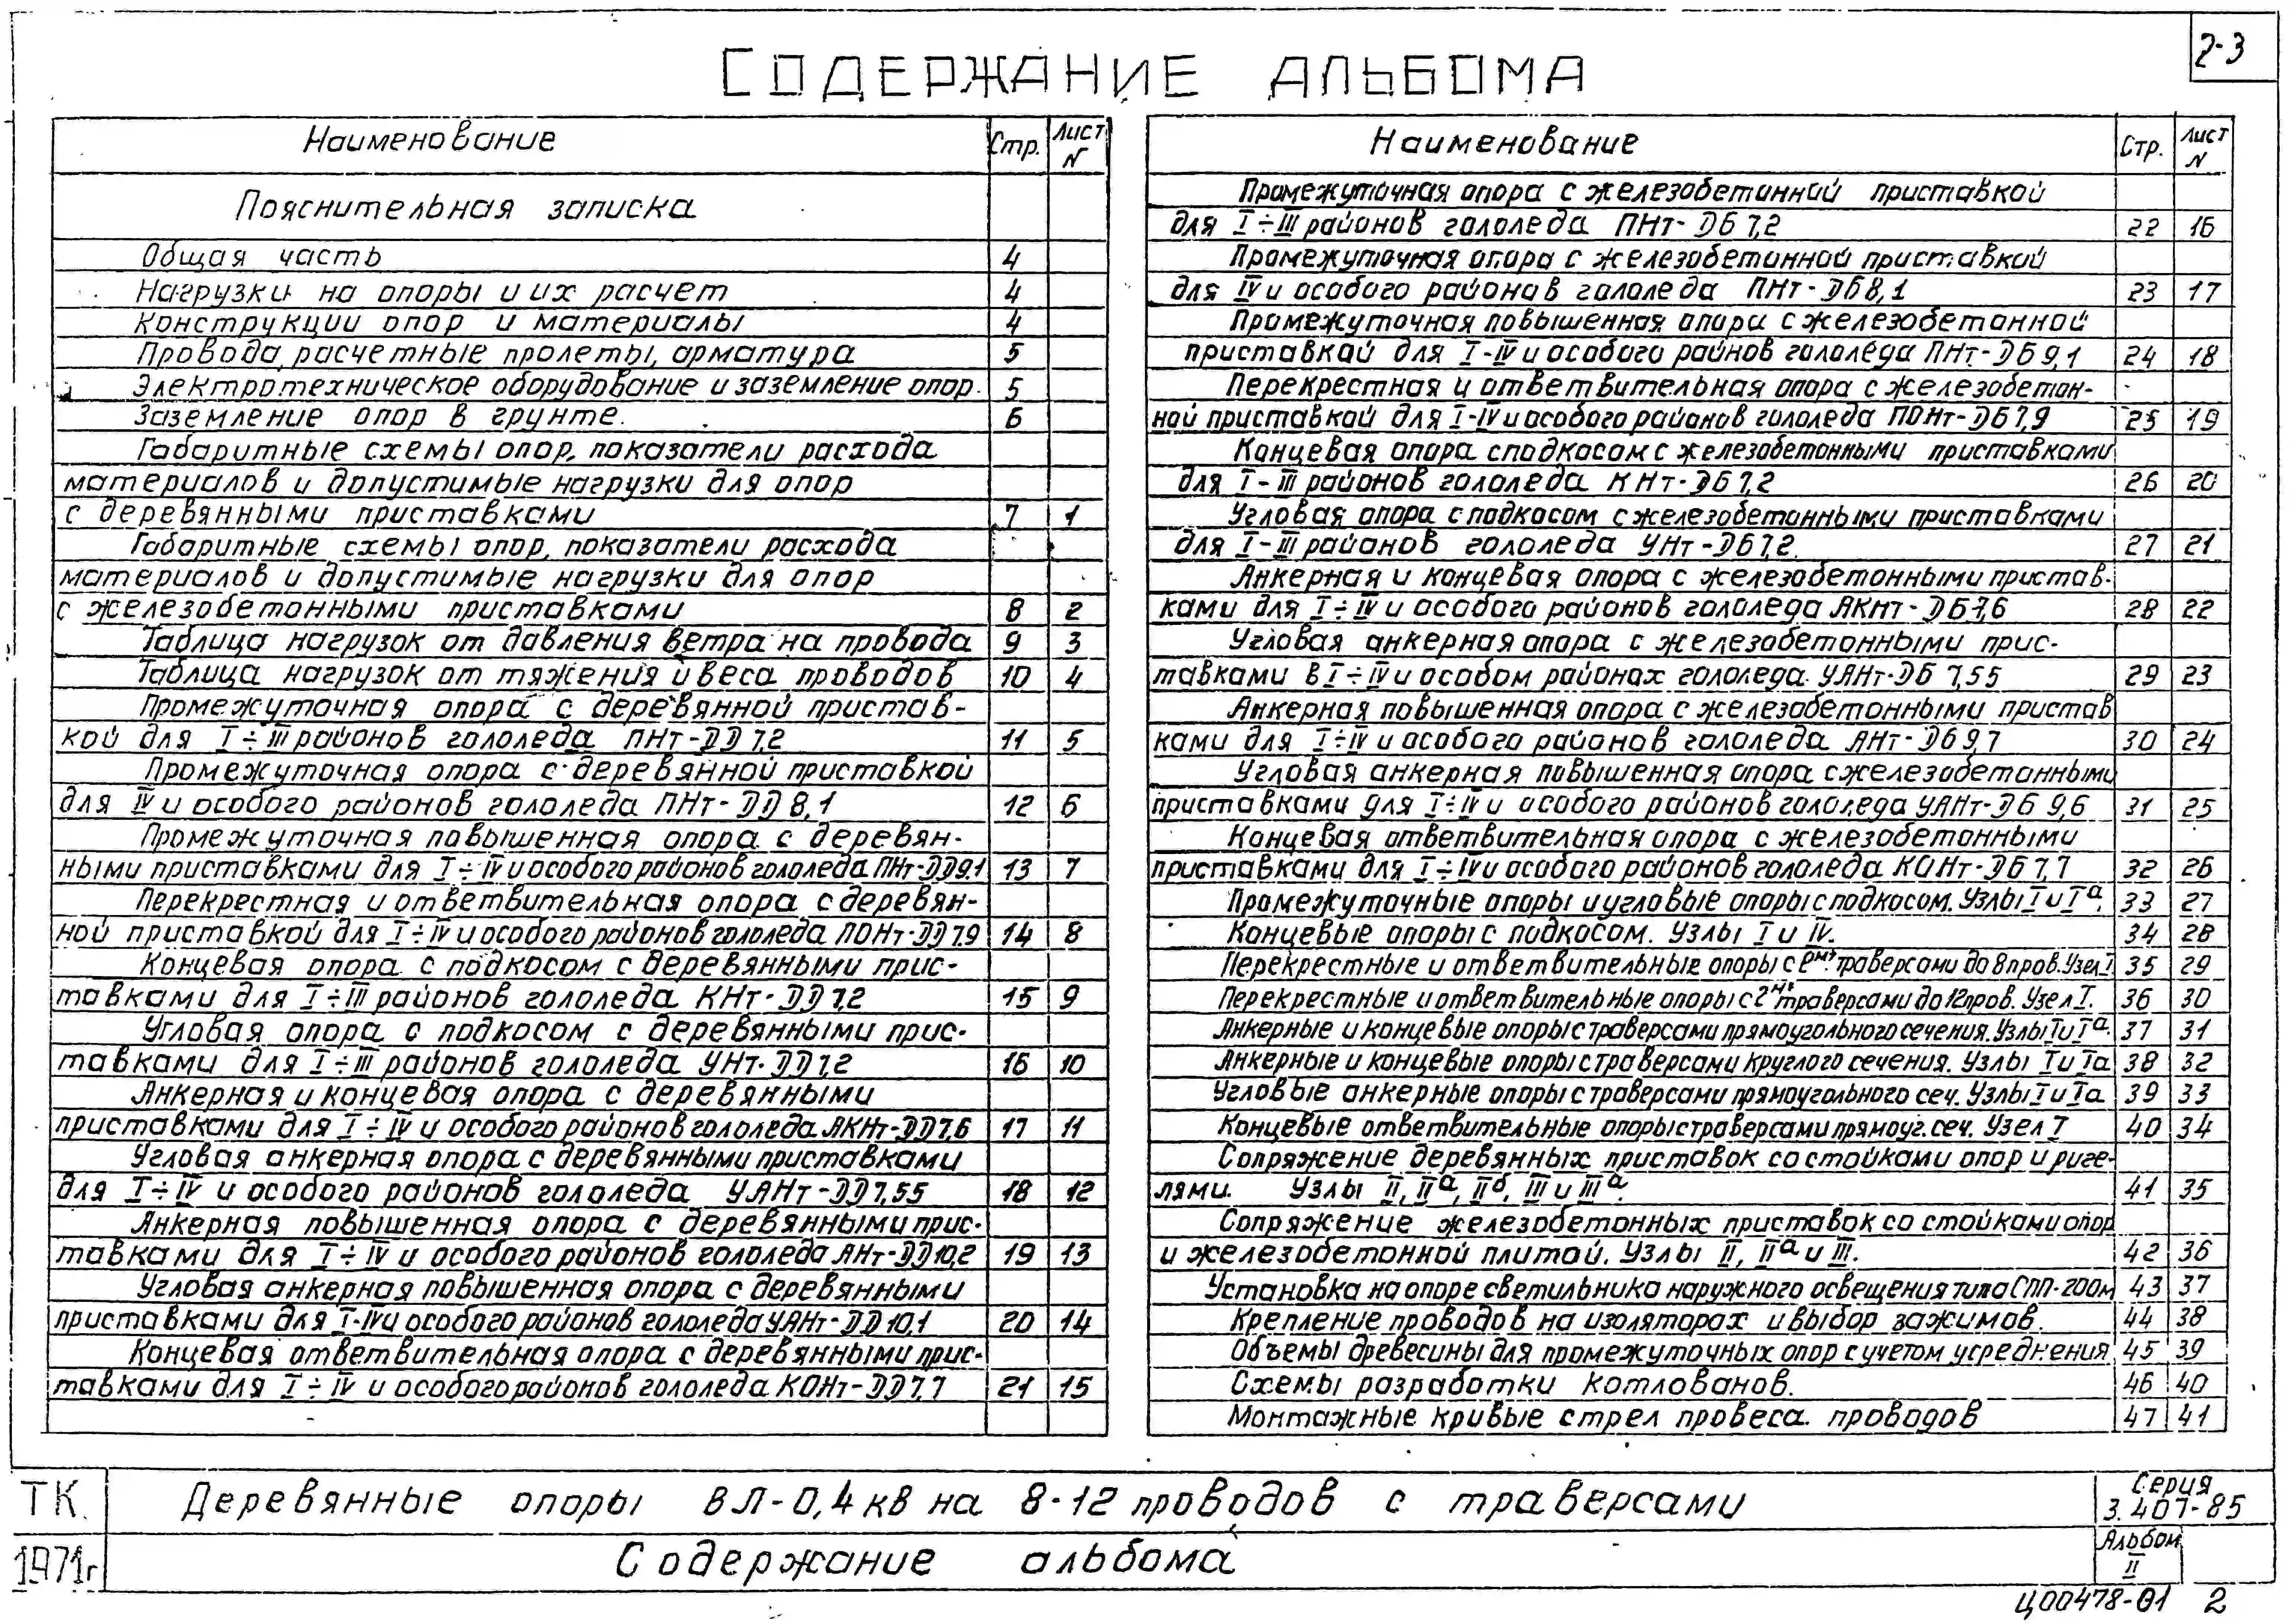 2-3
СОДЕРЖАНИЕ АЛЬБОМА
Наименование Стр. Лист N
Пояснительная записка
Общая часть 4
Нагрузки на опоры и их расчет 4
Конструкции опор и материалы 4
Провода, расчетные пролеты, арматура 5
Электротехническое оборудование и заземление опор. 5
Заземление опор в грунте. 6
Габаритные схемы опор, показатели расхода
материалов и допустимые нагрузки для опор
с деревянными приставками 7 1
Габаритные схемы опор, показатели расхода
материалов и допустимые нагрузки для опор
с железобетонными приставками 8 2
Таблица нагрузок от давления ветра на провода 9 3
Таблица нагрузок от тяжения и веса проводов 10 4
Промежуточная опора с деревянной пристав-
кой для I÷III районов гололеда ПНт-ДД 7,2 11 5
Промежуточная опора с деревянной приставкой
для IV и особого районов гололеда ПНт-ДД 8,1 12 6
Промежуточная повышенная опора с деревян-
ными приставками для I÷IV и особого районов гололеда ПНт-ДД 9,1 13 7
Перекрестная и ответвительная опора с деревян-
ной приставкой для I÷IV и особого районов гололеда ПОНт-ДД 7,9 14 8
Концевая опора с подкосом с деревянными прис-
тавками для I÷III районов гололеда КНт-ДД 7,2 15 9
Угловая опора с подкосом с деревянными прис-
тавками для I÷III районов гололеда УНт-ДД 7,2 16 10
Анкерная и концевая опора с деревянными
приставками для I÷IV и особого районов гололеда АКНт-ДД 7,6 17 11
Угловая анкерная опора с деревянными приставками
для I÷IV и особого районов гололеда УАНт-ДД 7,55 18 12
Анкерная повышенная опора с деревянными прис-
тавками для I÷IV и особого районов гололеда АНт-ДД 10,2 19 13
Угловая анкерная повышенная опора с деревянными
приставками для I-IV и особого районов гололеда УАНт-ДД 10,1 20 14
Концевая ответвительная опора с деревянными прис-
тавками для I÷IV и особого районов гололеда КОНт-ДД 7,7 21 15
Наименование Стр. Лист N
Промежуточная опора с железобетонной приставкой
для I÷III районов гололеда ПНт-ДБ 7,2 22 16
Промежуточная опора с железобетонной приставкой
для IV и особого районов гололеда ПНт-ДБ 8,1 23 17
Промежуточная повышенная опора с железобетонной
приставкой для I-IV и особого районов гололеда ПНт-ДБ 9,1 24 18
Перекрестная и ответвительная опора с железобетон-
ной приставкой для I-IV и особого районов гололеда ПОНт-ДБ 7,9 25 19
Концевая опора с подкосом с железобетонными приставками
для I-III районов гололеда КНт-ДБ 7,2 26 20
Угловая опора с подкосом с железобетонными приставками
для I-III районов гололеда УНт-ДБ 7,2. 27 21
Анкерная и концевая опора с железобетонными пристав-
ками для I÷IV и особого районов гололеда АКНт-ДБ 7,6 28 22
Угловая анкерная опора с железобетонными прис-
тавками в I÷IV и особом районах гололеда УАНт-ДБ 7,55 29 23
Анкерная повышенная опора с железобетонными пристав
ками для I÷IV и особого районов гололеда АНт-ДБ 9,7 30 24
Угловая анкерная повышенная опора с железобетонными
приставками для I÷IV и особого районов гололеда УАНт-ДБ 9,6 31 25
Концевая ответвительная опора с железобетонными
приставками для I÷IV и особого районов гололеда КОНт-ДБ 7,7 32 26
Промежуточные опоры и угловые опоры с подкосом. Узлы I и Iа. 33 27
Концевые опоры с подкосом. Узлы I и IV. 34 28
Перекрестные и ответвительные опоры с траверсами до 8 пров. Узел I 35 29
Перекрестные и ответвительные опоры с 2мя траверсами до 12 пров. Узел I. 36 30
Анкерные и концевые опоры с траверсами прямоугольного сечения. Узлы I и Iа. 37 31
Анкерные и концевые опоры с траверсами круглого сечения. Узлы I и Iа 38 32
Угловые анкерные опоры с траверсами прямоугольного сеч. Узлы I и Iа 39 33
Концевые ответвительные опоры с траверсами прямоуг. сеч. Узел I 40 34
Сопряжение деревянных приставок со стойками опор и риге-
лями. Узлы II, IIа, IIб, III и IIIа. 41 35
Сопряжение железобетонных приставок со стойками опор
и железобетонной плитой. Узлы II, IIа и III. 42 36
Установка на опоре светильника наружного освещения типа СПП-200м 43 37
Крепление проводов на изоляторах и выбор зажимов. 44 38
Объемы древесины для промежуточных опор с учетом усреднения 45 39
Схемы разработки котлованов. 46 40
Монтажные кривые стрел провеса проводов 47 41
ТК Деревянные опоры ВЛ-0,4 кВ на 8-12 проводов с траверсами Серия 3.407-85
1971г Содержание альбома Альбом II
Ц00478-01 2